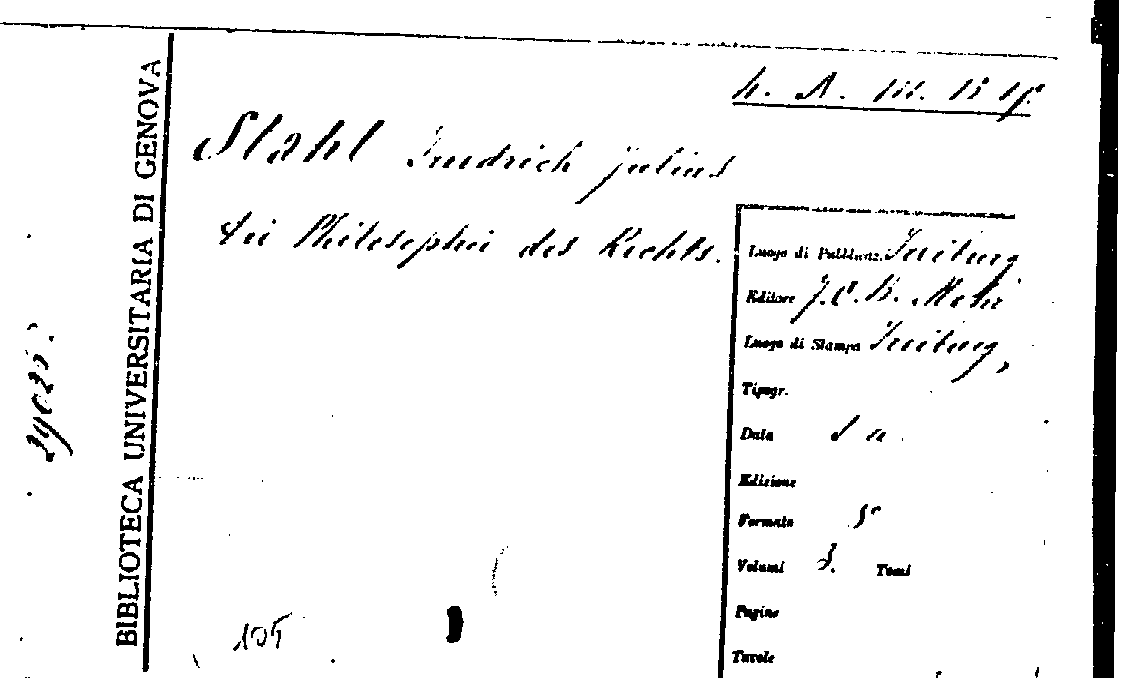 BIBLIOTECA UNIVERSITARIA DI GENOVA
Stahl Friedrich Julius
die Philosophie des Rechts.
Luogo di Pubblicaz. Freiburg
Editore J. C. B. Mohr
Luogo di Stampa Freiburg,
Tipogr.
Data s a.
Edizione
Formato 8°
Volumi 3. Tomi
Pagine
Tavole
105